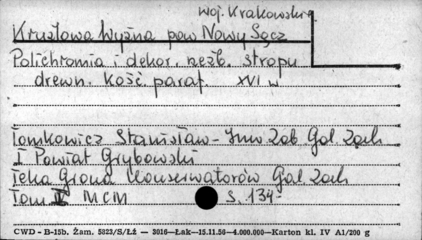 woj. Krakowskie
Krużlowa Wyżna pow Nowy Sącz
Polichromia i dekor. rzeźb. stropu
drewn. kość. paraf. XVI w
Tomkowicz Stanisław - Inw Zab. Gal Zach
I Powiat Grybowski
Teka Grona Konserwatorów Gal Zach
Tom II MCM S. 134-
CWD - B-15b. Zam. 5823/S/Łż — 3016—Łak—15.11.56—4.000.000—Karton kl. IV A1/200 g